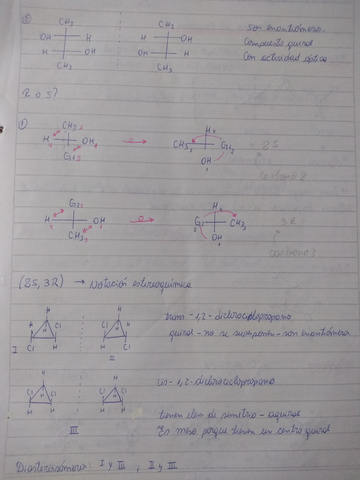 CH₃ CH₃ son enantiómeros.
OH H H OH Compuesto quiral
H OH OH H Con actividad óptica
CH₃ CH₃
R o S?
①
CH₃ H₄
H₄ OH₁ → CH₃ G₁₂ 2S
G₁₂ OH carbono 2
G₂₂ H₄
H OH₁ → G₂ CH₃ 3R
CH₃₃ OH carbono 3
(2S, 3R) → Notación estereoquímica
trans-1,2-diclorociclopropano
quiral - no se superponen - son enantiómeros
H H
H Cl Cl H
Cl H H Cl
I II
cis-1,2-diclorociclopropano
tienen elem de simetría - aquirales
Es meso porque tienen un centro quiral
H H
Cl Cl Cl Cl
H H H H
III
Diasterisómeros: I y III ; II y III